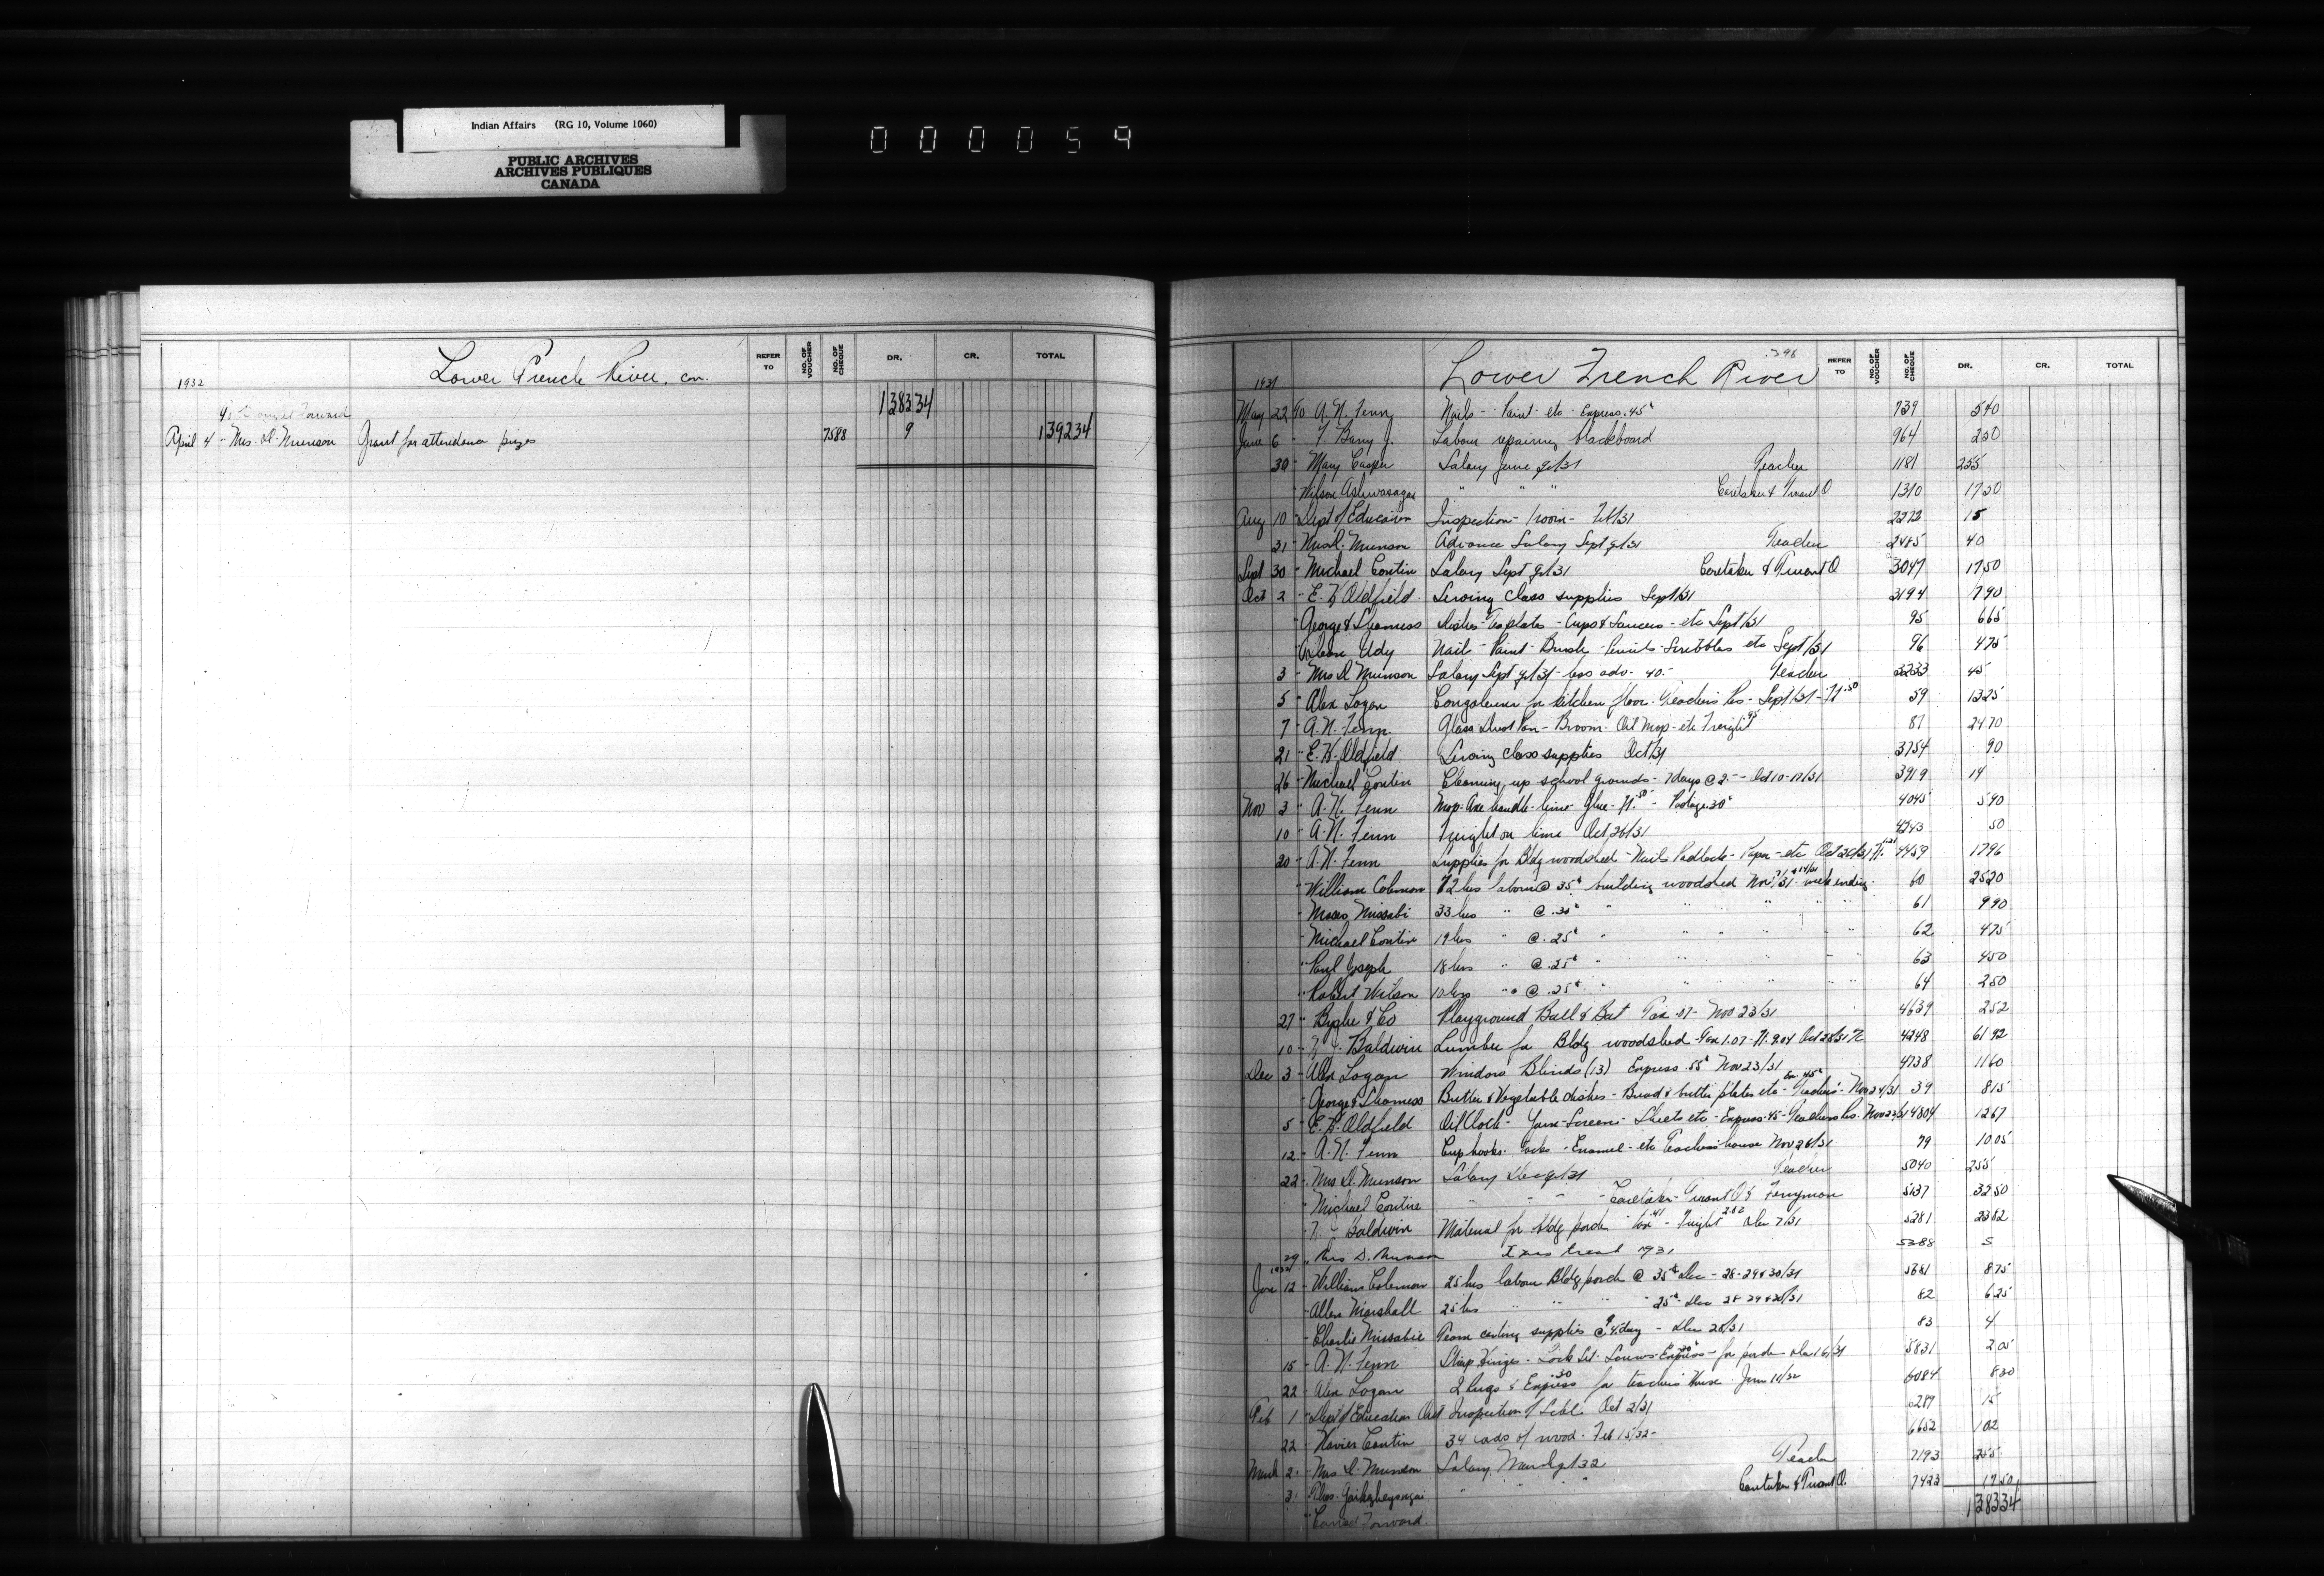 Indian Affairs (RG 10, Volume 1060)
PUBLIC ARCHIVES
ARCHIVES PUBLIQUES
CANADA
000059
Lower French River, con. REFER TO NO. OF VOUCHER NO. OF CHEQUE DR. CR. TOTAL
1932
To Amount Forward 138334
April 4 " Mrs. D. Munson Grant for attendance prizes 7588 9 139234
398
Lower French River REFER TO NO. OF VOUCHER NO. OF CHEQUE DR. CR. TOTAL
1931
May 22 To A. N. Fenn Nails - Paint etc Express .45¢ 739 540
June 6 " Barry J. Labour repairing blackboard 964 250
30 " Mary Casper Salary June qr/31 Teacher 1181 255
" Wilson Ashawasagai " " " Caretaker & Truant O 1310 1750
Aug 10 Dept of Education Inspection - 1 room - Feb/31 2272 15
31 " Mrs D. Munson Advance Salary Sept qr/31 Teacher 2485 40
Sept 30 " Michael Contin Salary Sept qr/31 Caretaker & Truant O. 3047 1750
Oct 2 " E. W. Oldfield Sewing class supplies Sept/31 3194 790
" George & Dishes - Teaplates - Cups & Saucers - etc Sept/31 95 665
" Udy Nails - Paint - Brush - Pencils - Scribblers etc Sept/31 96 475
3 " Mrs D Munson Salary Sept qr/31 - less adv. 40.- Teacher 3233 45
5 " Alex Logan Congoleum for kitchen floor - Teachers Res - Sept/31 - Ft .50 59 1325
7 " A. N. Fenn Glass Dust Pan - Broom - Oil Mop - etc Freight 87 2470
21 " E. W. Oldfield Sewing class supplies Oct/31 3754 90
26 " Michael Contin Cleaning up school grounds - 7 days @ 2.-- Oct 10-17/31 3919 14
Nov 3 " A. N. Fenn Mop - Axe handle - lime - Glue - Ft. .50 - Postage 30¢ 4045 590
10 " A. N. Fenn Freight on lime Oct 26/31 4243 50
20 " A. N. Fenn Supplies for Bldg woodshed - Nails Padlock - Paper - etc Oct 26/31 Ft. 4459 1796
" William Coleman 72 hrs labour @ 35¢ building woodshed Nov 7/31 & 14/31 week ending 60 2520
" Moses Missabi 33 hrs " @ .30¢ " " " " " 61 990
" Michael Contin 19 hrs " @ .25¢ " " " " " 62 475
" Paul Joseph 18 hrs " @ .25¢ " " " " " 63 450
" Robert Wilson 10 hrs " @ .25¢ " " " " " 64 250
27 " & Co Playground Ball & Bat Tax .07 - Nov 23/31 4639 252
10 " Baldwin Lumber for Bldg woodshed - Tax 1.07 - Ft. 9.04 Oct 28/31 4248 6192
Dec 3 " Alex Logan Window Blinds (13) Express .55¢ Nov 23/31 4738 1160
" George & Butter & Vegetable dishes - Bread & butter plates etc - Ex. .45¢ Teachers' - Nov 24/31 39 815
5 " E. W. Oldfield Oil Cloth - Yarn - Screens - Sheets etc - Express .45 - Teachers Res. Nov 23/31 4804 1267
12 " A. N. Fenn Cup hooks - Tacks - Enamel - etc Teachers house Nov 28/31 79 1005
22 " Mrs D. Munson Salary Dec qr/31 Teacher 5040 255
" Michael Contin " " " Caretaker - Truant O & Ferryman 5137 3250
" Baldwin Material for bldg porch Tax .41 - Freight 2.82 Dec 7/31 5281 2382
29 " Mrs D. Munson Xmas treat 1931 5388 5
1932
Jan 12 " William Coleman 25 hrs labour Bldg porch @ 35¢ Dec - 28-29 & 30/31 5681 875
" Allen Marshall 25 hrs " " " " 25¢ Dec 28 29 & 30/31 82 625
" Charlie Missabie Team carting supplies @ 4. day - Dec 28/31 83 4
15 " A. N. Fenn Strap Hinges - Lock Set - Screws - Express - for porch Dec 16/31 5831 205
22 " Alex Logan 2 Rugs & Express .30 for teachers House - Jan 11/32 6084 830
Feb 1 " Dept of Education Ont Inspection of Schl. Oct 2/31 6289 15
22 " Xavier Contin 34 cds of wood - Feb 15/32 - 6652 102
March 2 " Mrs D. Munson Salary March qr/32 Teacher 7193 255
3 " " " Caretaker & Truant O. 7423 1750
" Carried Forward 138334